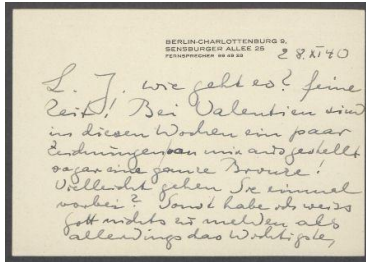 BERLIN-CHARLOTTENBURG 9,
SENSBURGER ALLEE 26
FERNSPRECHER 99 49 23
28. XI 40
L. J. wie geht es? feine
Zeit! Bei Valentien sind
in diesen Wochen ein paar
Zeichnungen von mir ausgestellt
sogar eine ganze Bronze!
Vielleicht gehen Sie einmal
vorbei? Sonst habe ich weiss
Gott nichts zu melden als
allerdings das Wichtigste,